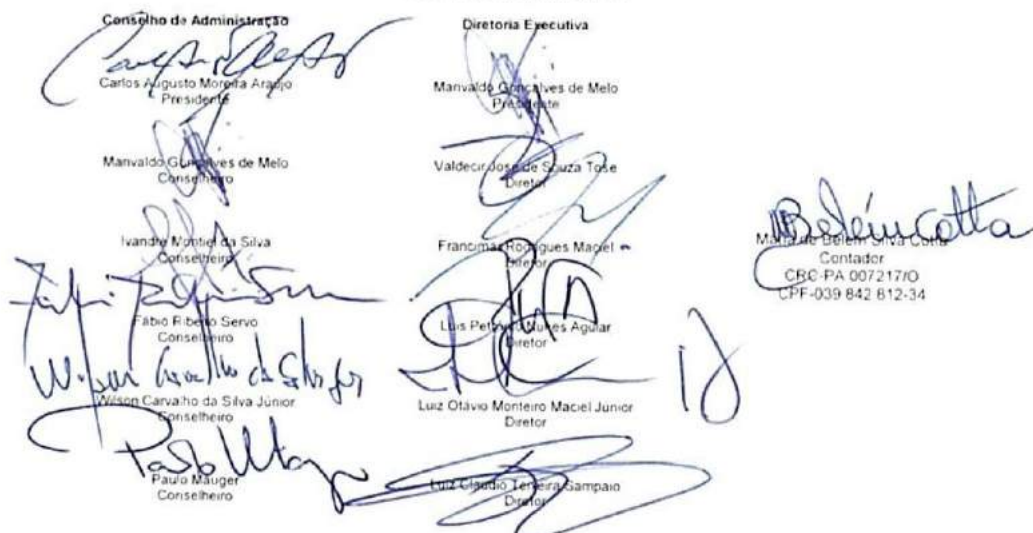 Conselho de Administração
Carlos Augusto Moreira Araújo
Presidente
Manvaldo Gonçalves de Melo
Conselheiro
Ivandré Montiel da Silva
Conselheiro
Fábio Ribeiro Servo
Conselheiro
Wilson Carvalho da Silva Júnior
Conselheiro
Paulo Mauger
Conselheiro
Diretoria Executiva
Manvaldo Gonçalves de Melo
Presidente
Valdecir José de Souza Tose
Diretor
Francimar Rodrigues Maciel
Diretor
Luis Petrônio Nunes Aguiar
Diretor
Luiz Otávio Monteiro Maciel Júnior
Diretor
Luiz Cláudio Teixeira Sampaio
Diretor
Belém Cotta
Maria de Belém Silva Cotta
Contador
CRC-PA 007217/O
CPF-039 842 812-34